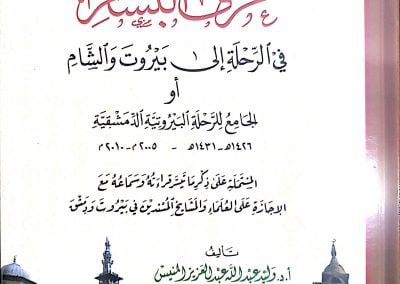 في الرِّحْلَةِ إِلى بَيْرُوتَ وَالشَّامِ
أو
الجَامِعُ لِلرِّحْلَةِ البَيْرُوتِيَّةِ الدِّمَشْقِيَّةِ
١٤٢٦هـ - ١٤٣١هـ - ٢٠٠٥م - ٢٠١٠م
المُشْتَمِلَةِ عَلَى ذِكْرِ مَا تَيَسَّرَ قِرَاءَتُهُ وَسَمَاعُهُ مَعَ
الإِجَازَةِ عَلَى العُلَمَاءِ وَالمَشَايِخِ المُسْنِدِينَ فِي بَيْرُوتَ وَدِمَشْقَ
تأليف
أ.د. وَليد عَبد الله عَبد العَزيز المنيس